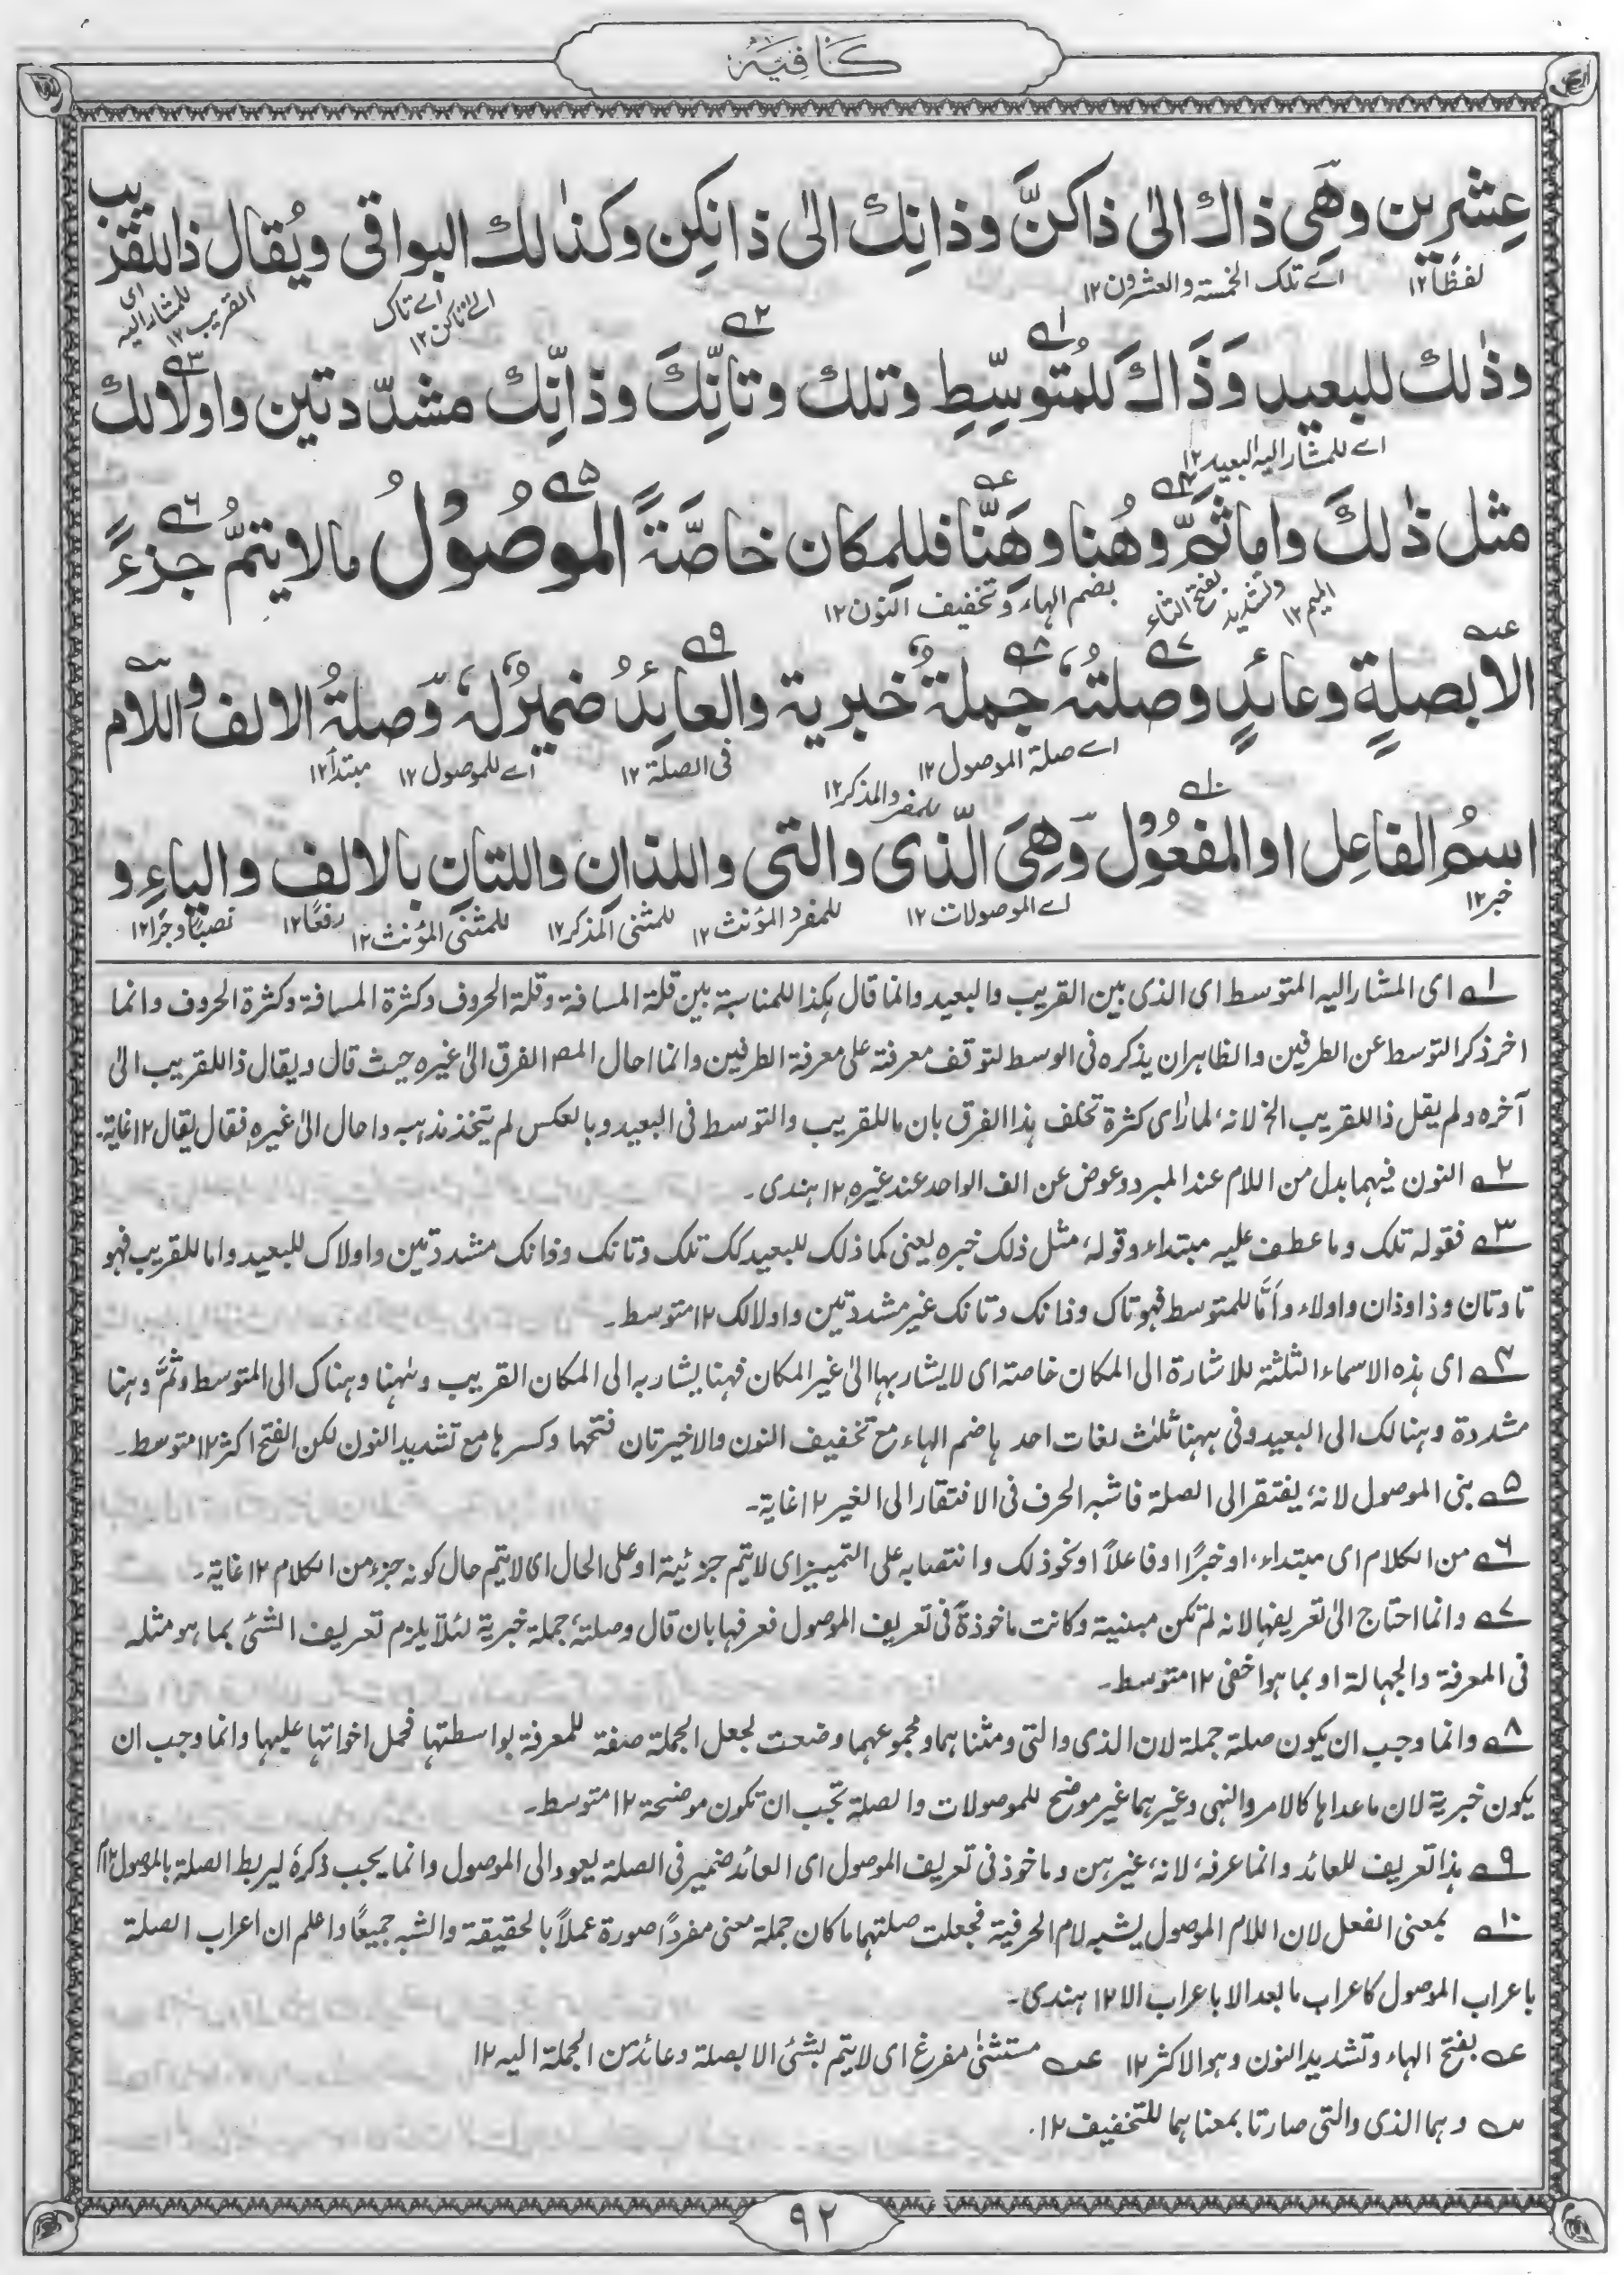 كَافِيَة
عِشرين وهَي ذاك الىٰ ذاكنَّ وذانِك الىٰ ذانِكن وكذٰالك البواقی ويُقال ذاللقريب
لفظًا١٢ اے تلک الخمسة والعشرون١٢ اے تاک الےٰ تاکن١٢ القريب١٢ ای للمشار اليه
وذٰلك للبعيد وَذَاكَ للمُتوسِّطِ وتلك وتانِّكَ وذانِّك مشدّدتين واولالك
اے للمشار اليه البعيد١٢
مثل ذٰلكَ واما ثَمَّ وهُنا وهَنَّا فللمكان خاصَّةً الموصُولُ مالايتمُّ جزءً
الميم١٢ وتشديد بفتح الثاء بضم الهاء وتخفيف النون١٢
الابصلةٍ وعائدٍ وصلتُهٗ جملةٌ خبرية والعائدُ ضميرٌ لهٗ وَصلةُ الالف واللام
اے صلة الموصول١٢ فی الصلة١٢ اے للموصول١٢ مبتدأ١٢
اسمُ الفاعِل اوالمفعُوْل وَهِیَ الّذی والتی واللذانِ واللتانِ بالالف والياءِ و
خبر١٢ اے الموصولات١٢ للمفرد المذکر١٢ للمفرد المؤنث١٢ للمثنی المذکر١٢ للمثنی المؤنث١٢ رفعًا١٢ نصبًا وجرًا١٢
١ ای المشار اليه المتوسط ای الذی بين القريب والبعيد وانما قال هکذا للمناسبة بين قلة المسافة وقلة الحروف وکثرة المسافة وکثرة الحروف وانما
اخر ذکر التوسط عن الطرفين والظاهر ان يذکره فی الوسط لتوقف معرفته علی معرفة الطرفين وانما احال المص الفرق الیٰ غيره حيث قال ويقال ذا للقريب الیٰ
آخره ولم يقل ذا للقريب الخ لانهٗ لما رأی کثرة تخلف هذا الفرق بان ما للقريب والتوسط فی البعيد وبالعکس لم يتخذ مذهبه واحال الیٰ غيرهٖ فقال يقال ١٢ غاية۔
٢ النون فيهما بدل من اللام عند المبرد وعوض عن الف الواحد عند غيرهٖ ١٢ هندی۔
٣ فقوله تلک وما عطف عليه مبتداء وقولهٗ مثل ذلک خبره يعنی کما ذلک للبعيد کک تلک وتانک وذانک مشددتين واولاک للبعيد واما للقريب فهو
تا وتان وذا وذان واولاء وأمّا للمتوسط فهو تاک وذانک وتانک غير مشددتين واولالک ١٢ متوسط۔
٤ ای هذه الاسماء الثلثة للاشارة الی المکان خاصة ای لايشار بها الیٰ غير المکان فهنا يشار به الی المکان القريب وههنا وهناک الی المتوسط وثَمَّ وهنا
مشددة وهنالک الی البعيد وفی ههنا ثلٰث لغات احدها ضم الهاء مع تخفيف النون والاخيرتان فتحها وکسرها مع تشديد النون لکن الفتح اکثر ١٢ متوسط۔
٥ بنی الموصول لانهٗ يفتقر الی الصلة فاشبه الحرف فی الافتقار الی الغير ١٢ غاية۔
٦ من الکلام ای مبتداء او خبرًا او فاعلاً او نحو ذلک وانتصابه علی التمييز ای لايتم جزئيته او علی الحال ای لايتم حال کونه جزء من الکلام ١٢ غاية۔
٧ وانما احتاج الیٰ تعريفها لانه لم تکن مبنية وکانت ماخوذة فی تعريف الموصول فعرفها بان قال وصلتهٗ جملة خبرية لئلا يلزم تعريف الشئ بما هو مثله
فی المعرفة والجهالة او بما هو اخفی ١٢ متوسط۔
٨ وانما وجب ان يکون صلته جملة لان الذی والتی ومثناهما ومجموعهما وضعت لجعل الجملة صفة للمعرفة بواسطتها فحمل اخواتها عليها وانما وجب ان
يکون خبرية لان ماعداها کالامر والنهی وغيرهما غير موضح للموصولات والصلة تجب ان تکون موضحة ١٢ متوسط۔
٩ هذا تعريف للعائد وانما عرفهٗ لانهٗ غير مبين وماخوذ فی تعريف الموصول ای العائد ضمير فی الصلة يعود الی الموصول وانما يجب ذکرهٗ ليربط الصلة بالموصول ١٢
١٠ بمعنی الفعل لان اللام الموصول يشبه لام الحرفية فجعلت صلتها ما کان جملة معنی مفردًا صورة عملاً بالحقيقة والشبه جميعًا واعلم ان اعراب الصلة
باعراب الموصول کاعراب مابعد الا باعراب الا ١٢ هندی۔
عه بفتح الهاء وتشديد النون وهو الاکثر ١٢ عه مستثنیٰ مفرغ ای لايتم بشئ الا بصلة وعائد من الجملة اليه ١٢
سه وهما الذی والتی صارتا بمعناهما للتخفيف ١٢۔
٩٢